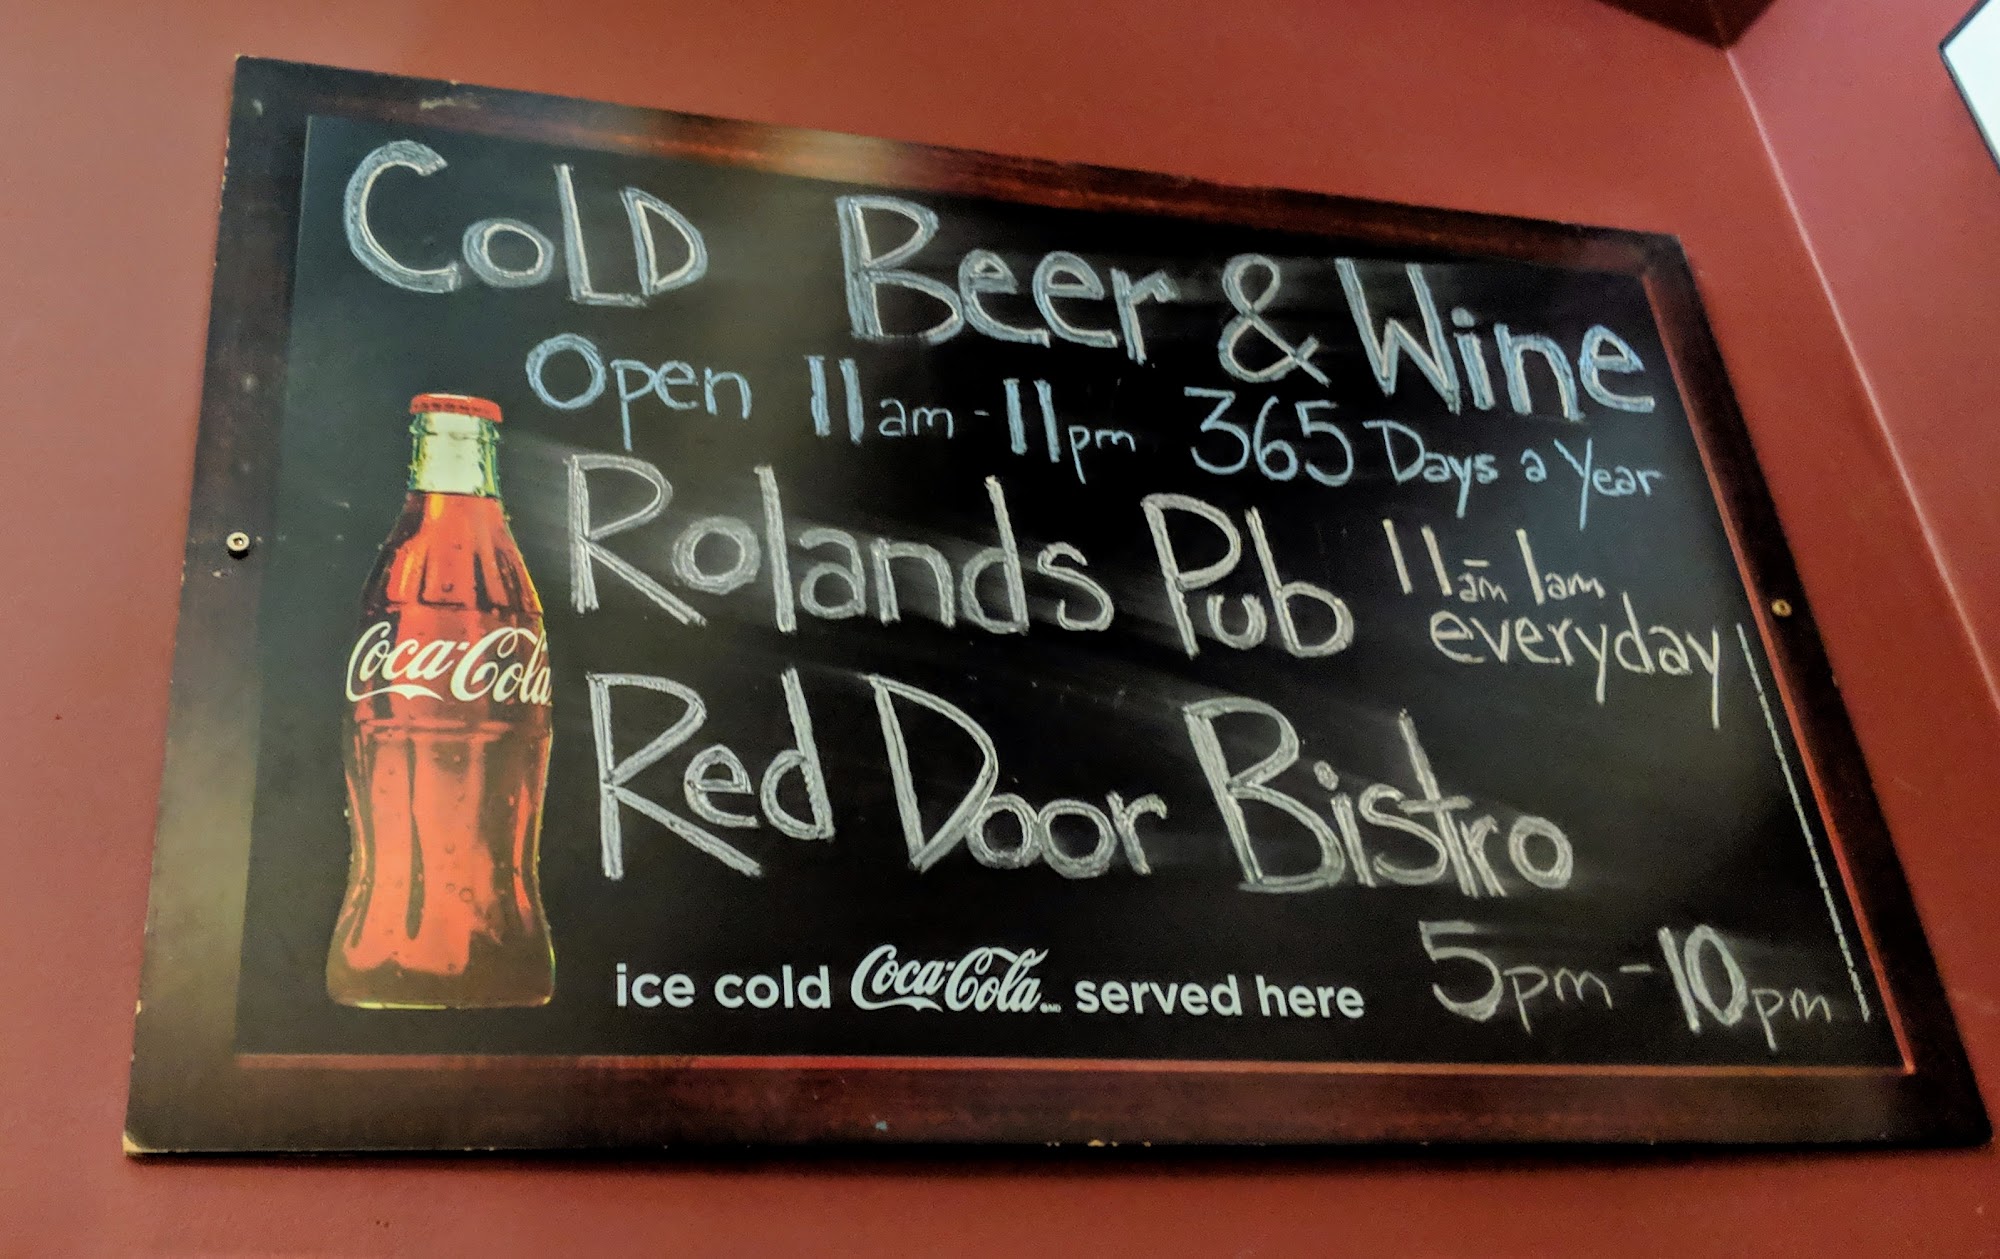 Cold Beer & Wine
Open 11am - 11pm 365 Days a Year
Rolands Pub 11am - 1am
everyday
Red Door Bistro
5pm - 10pm
Coca-Cola
ice cold Coca-Cola served here